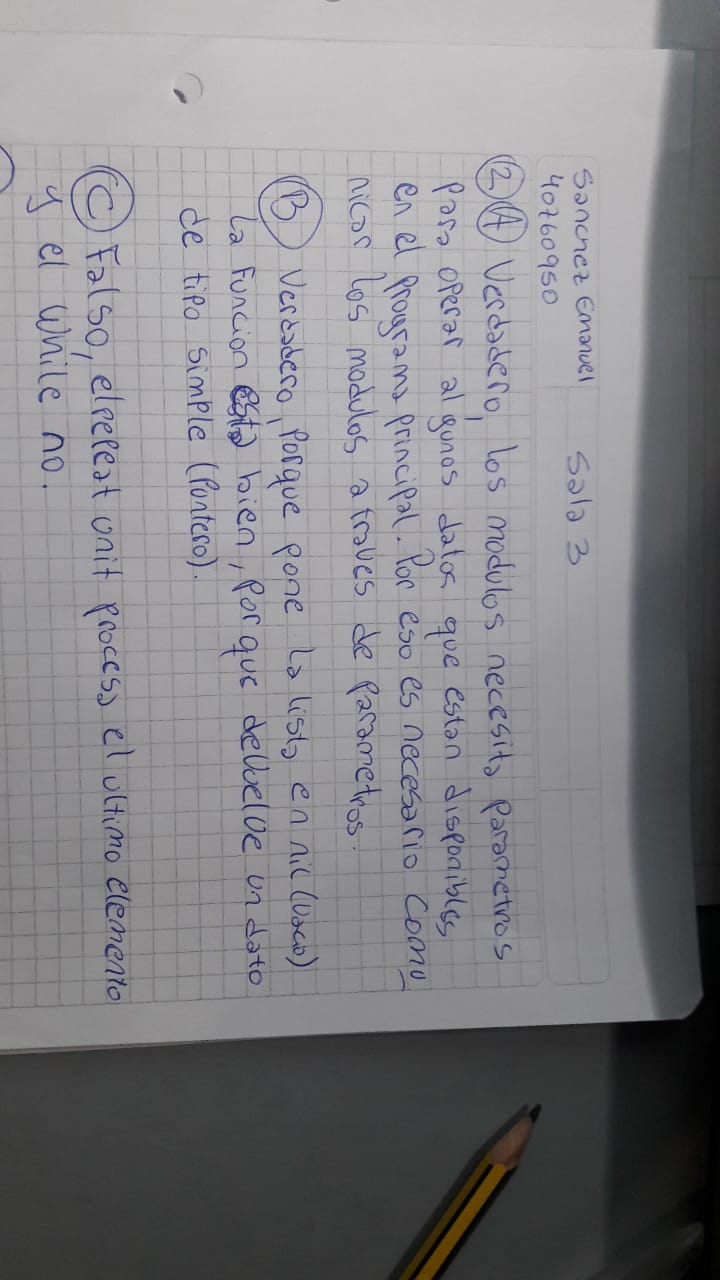 Sanchez Emanuel
Sala 3
40760950
2 A Verdadero, los modulos necesita parametros
para operar algunos datos que estan disponibles
en el programa principal. Por eso es necesario comu
nicar los modulos a traves de parametros.
B Verdadero, porque pone la lista en nil (vacio)
La funcion esta bien, por que devuelve un dato
de tipo simple (Puntero).
C Falso, el repeat unit procesa el ultimo elemento
y el While no.